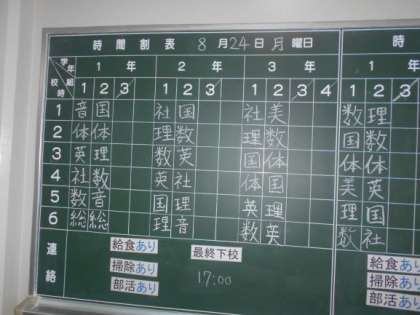 時間割表 8月24日月曜日 時
学年 組 校時 1年 2年 3年 1
1 2 3 1 2 3 1 2 3 4 1 2
1 音 国 社 国 社 美 数 理
2 体 体 理 数 理 数 国 数
3 英 理 数 英 国 体 体 体
4 社 数 英 社 体 国 美 英
5 数 音 国 理 英 理 理 国
6 総 総 理 音 数 英 数 社
連絡 給食あり 最終下校 給食あり
掃除あり 17:00 掃除あり
部活あり 部活あり